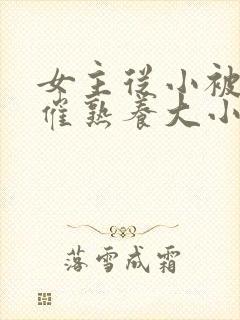 女主从小被
催熟养大小
落雪成霜